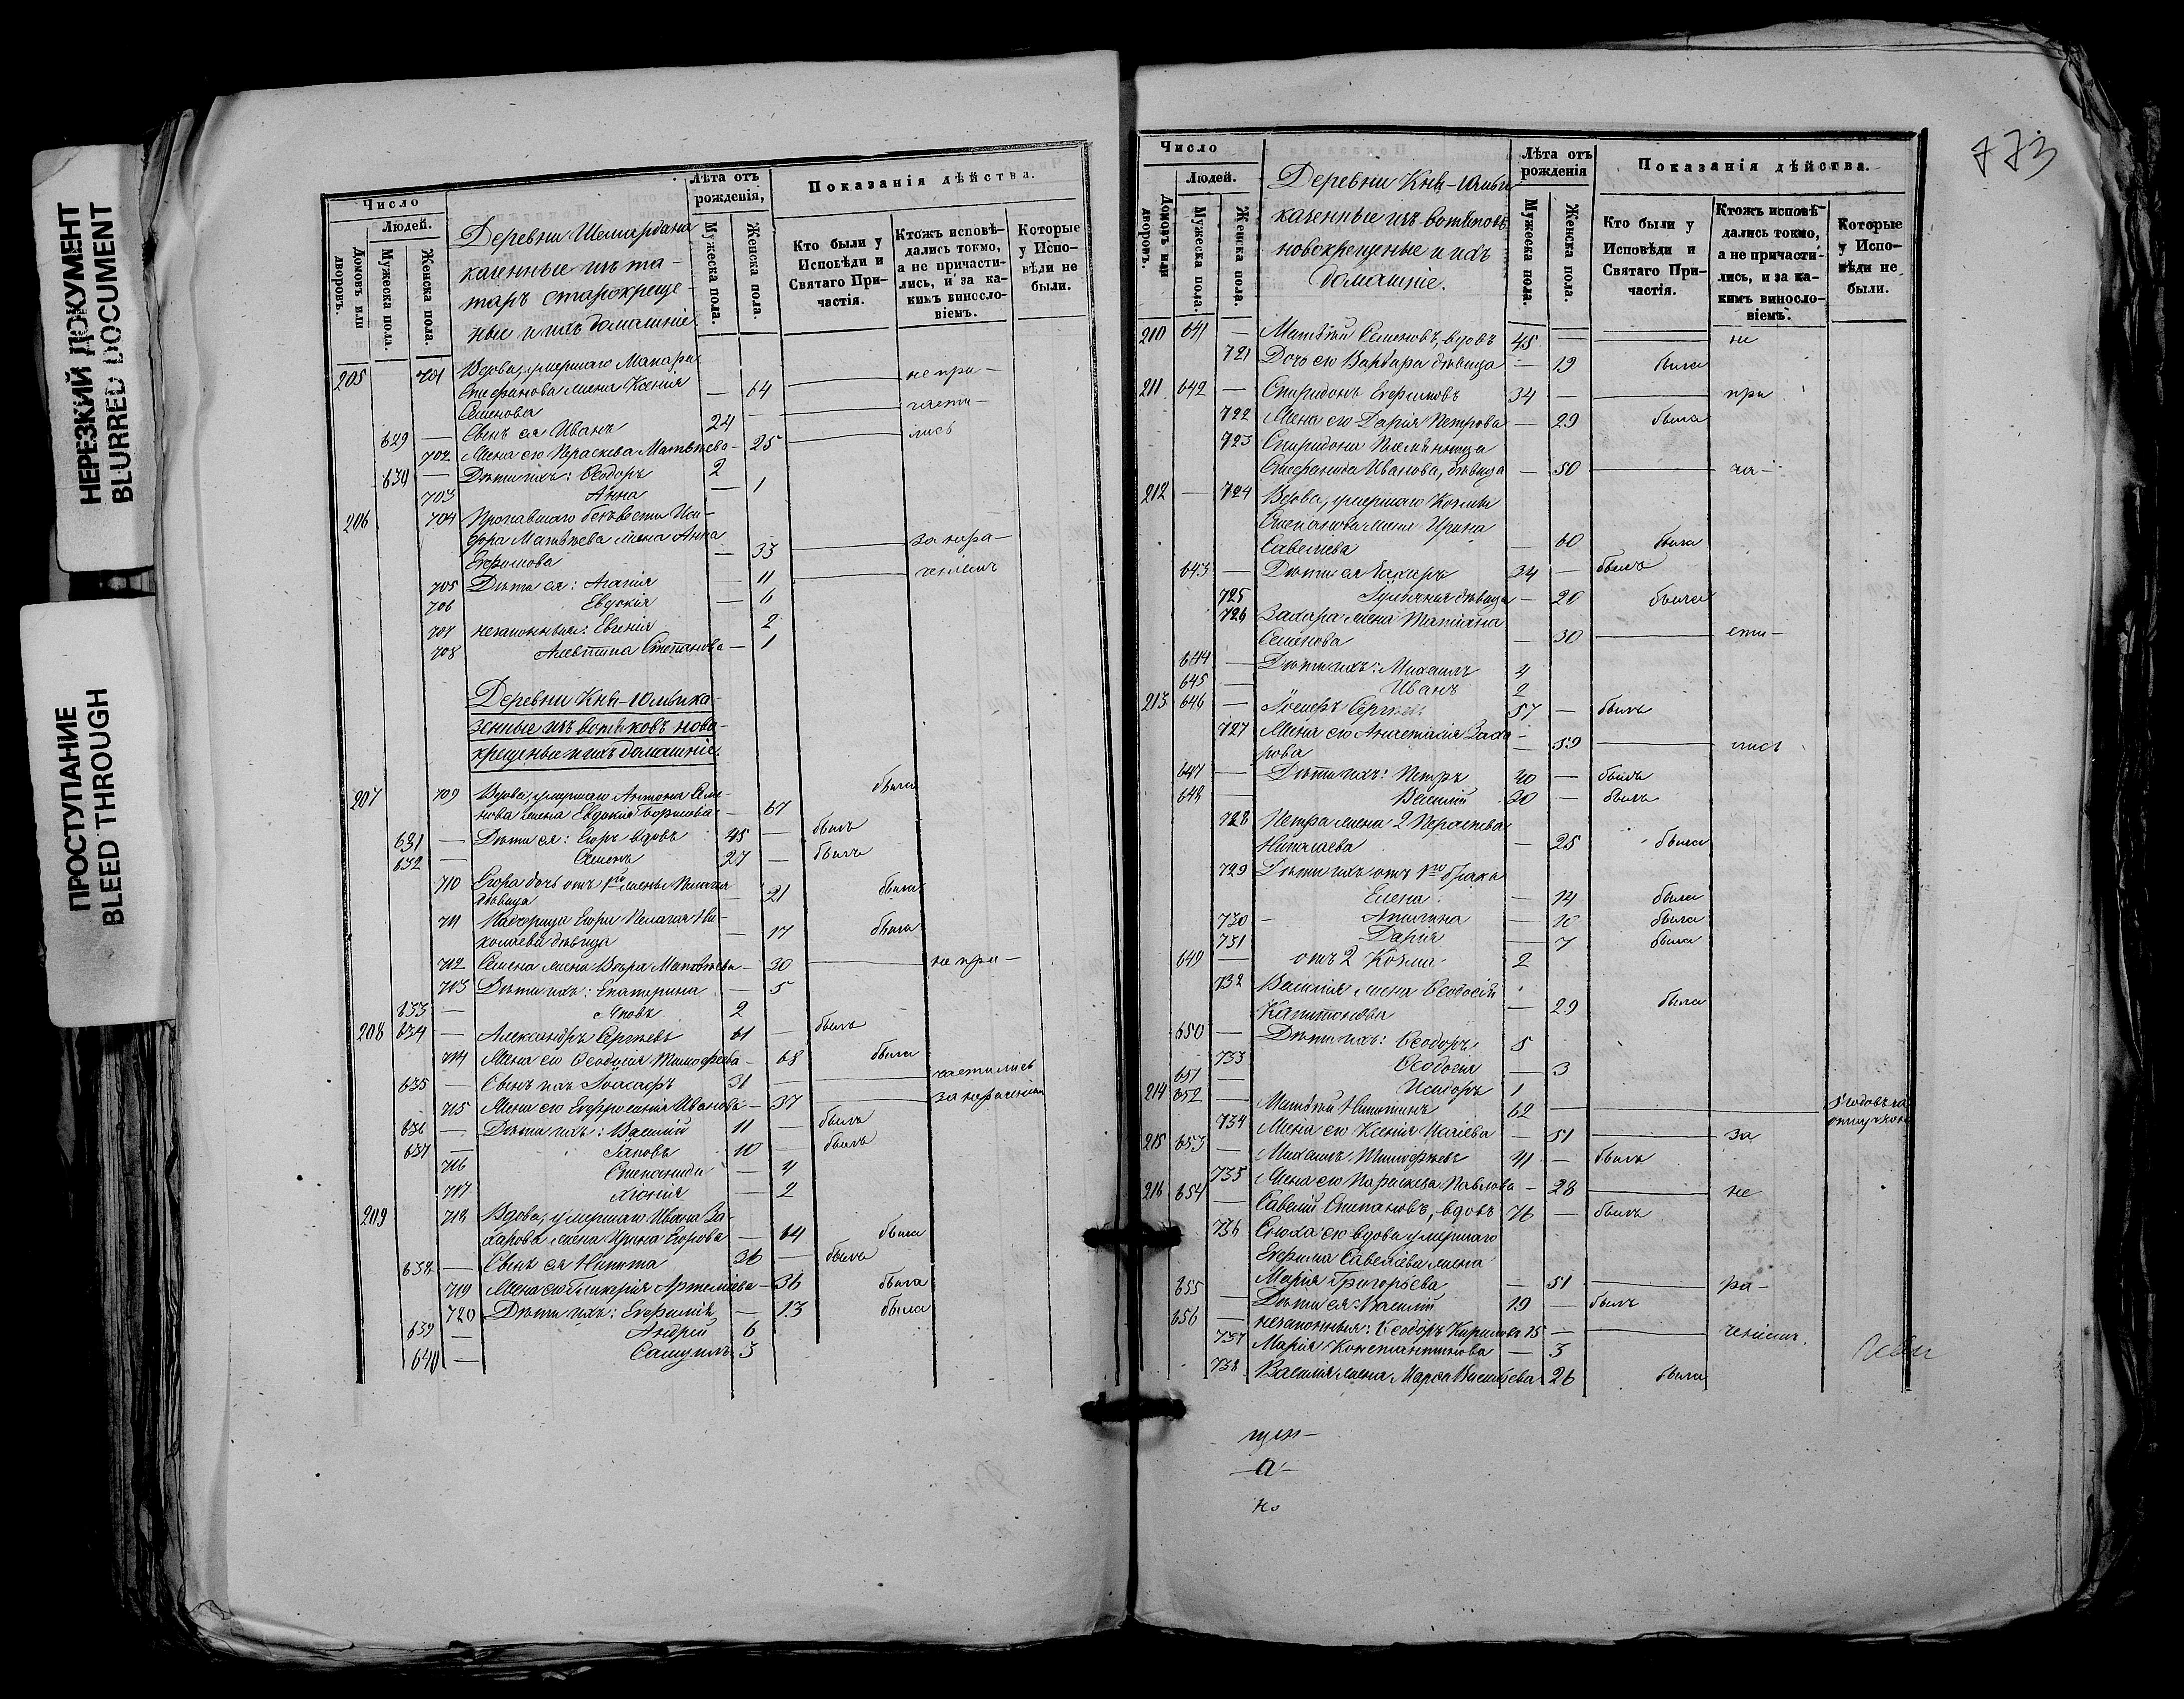 НЕРЕЗКИЙ ДОКУМЕНТ
BLURRED DOCUMENT
ПРОСТУПАНИЕ
BLEED THROUGH
Число
Людей.
Домовъ или дворовъ.
Мужеска пола.
Женска пола.
Деревни Шемардана
казенные изъ та-
таръ старокреще-
ные и ихъ домашніе
Лѣта отъ рожденія,
Мужеска пола.
Женска пола.
Показанія дѣйства.
Кто были у Исповѣди и Святаго При-частія.
Ктожъ исповѣ-дались токмо, а не причасти-лись, и за ка-кимъ винословіемъ.
Которые у Испо-вѣди не были.
205 701 Вдова, умершаго Макара
Стефанова жена Ксенія — 64 не при-
Семенова части-
629 — Сынъ ея Иванъ 24 лись
702 Жена его Параскева Матвѣева — 25
630 — Дѣти ихъ: Ѳеодоръ 2
703 Анна — 1
206 704 Пропавшаго безъвести Иси-
дора Матвѣева жена Анна за нера-
Ефимова — 33 ченіемъ
705 Дѣти ея: Агапія — 11
706 Евдокія — 6
707 незаконныя: Евгенія 2
708 Алевтина Степанова — 1
Деревни Кня-Юмьи ка-
зенные изъ вотяковъ ново-
крещеные и ихъ домашніе.
207 709 Вдова, умершаго Антона Семе- была
нова жена Евдокія Борисова — 67
631 — Дѣти ея: Егоръ вдовъ 45 — былъ
632 — Семенъ 27 — былъ
710 Егора дочь отъ 1й жены Пелагія
дѣвица — 21 была
711 Падчерица Егора Пелагія Ни-
колаева дѣвица — 17 была
712 Семена жена Вѣра Матвѣева — 30 не при-
713 Дѣти ихъ: Екатерина — 5
633 — Яковъ 2
208 634 — Александръ Сергѣевъ 61 — былъ
714 Жена его Ѳеодосія Тимофеева — 68 была
635 — Сынъ ихъ Іоасафъ 31 — частились
715 Жена его Евфросинія Иванова — 37 за нераченіемъ
636 — Дѣти ихъ: Василій 11 — былъ
637 — Іаковъ 10 — былъ
716 Степанида — 4
717 Хіонія — 2
209 718 Вдова, умершаго Ивана За-
харова жена Ирина Егорова — 64 была
638 — Сынъ ея Никита 36 — былъ
719 Жена его Гликерія Артеміева — 36 была
720 Дѣти ихъ: Евфимія — 13 была
639 — Андрей 6
640 — Самуилъ 3
773
Число
Людей.
Домовъ или дворовъ.
Мужеска пола.
Женска пола.
Деревни Кня-Юмьи
казенные изъ вотяковъ
новокрещеные и ихъ
домашніе.
Лѣта отъ рожденія
Мужеска пола.
Женска пола.
Показанія дѣйства.
Кто были у Исповѣди и Святаго При-частія.
Ктожъ исповѣ-дались токмо, а не причасти-лись, и за ка-кимъ винословіемъ.
Которые у Испо-вѣди не были.
210 641 — Матѳей Семеновъ, вдовъ 45 — не
721 Дочь его Варвара дѣвица — 19 была
211 642 — Спиридонъ Ефимовъ 34 — при
722 Жена его Дарія Петрова — 29 была
723 Спиридона племянница
Стефанида Иванова, дѣвица — 50 ча-
212 — 724 Вдова, умершаго Козьмы
Степанова жена Ирина
Савельева — 60 была
643 — Дѣти ея Захаръ 34 — былъ
725 Іуліанія дѣвица — 20 была
726 Захара жена Татіана
Семенова — 30 сти-
644 — Дѣти ихъ: Михаилъ 4
645 — Иванъ 2
213 646 — Іосифъ Сергѣевъ 57 — былъ
727 Жена его Анастасія Заха-
рова — 59 лись
647 — Дѣти ихъ: Петръ 40 — былъ
648 — Василій 30 — былъ
728 Петра жена 2 Параскева
Николаева — 25 была
729 Дѣти ихъ отъ 1го брака
Елена — 14 была
730 — Акилина — 10 была
731 Дарія — 7 была
649 — отъ 2 Козма 2
732 Василія жена Ѳеодосія
Капитонова — 29 была
650 — Дѣти ихъ: Ѳеодоръ 5
733 Ѳеодосія — 3
651 — Исидоръ 1
214 652 — Матѳей Никитинъ 62 5 годовъ въ отлучкѣ
734 Жена его Ксенія Исаіева — 51 за
215 653 — Михаилъ Тимофѣевъ 41 — былъ
735 Жена его Параскева Павлова — 28 не
216 654 — Савелій Степановъ, вдовъ 76 — былъ
736 Сноха его вдова умершаго
Ефима Савеліева жена
Марія Григорьева — 51 ра-
655 — Дѣти ея: Василій 19 — былъ
656 — незаконныя: Ѳеодоръ Кирилова 15 — ченіемъ.
737 Марія Константинова — 3
738 Василія жена Марѳа Василіева 26 была
а
но